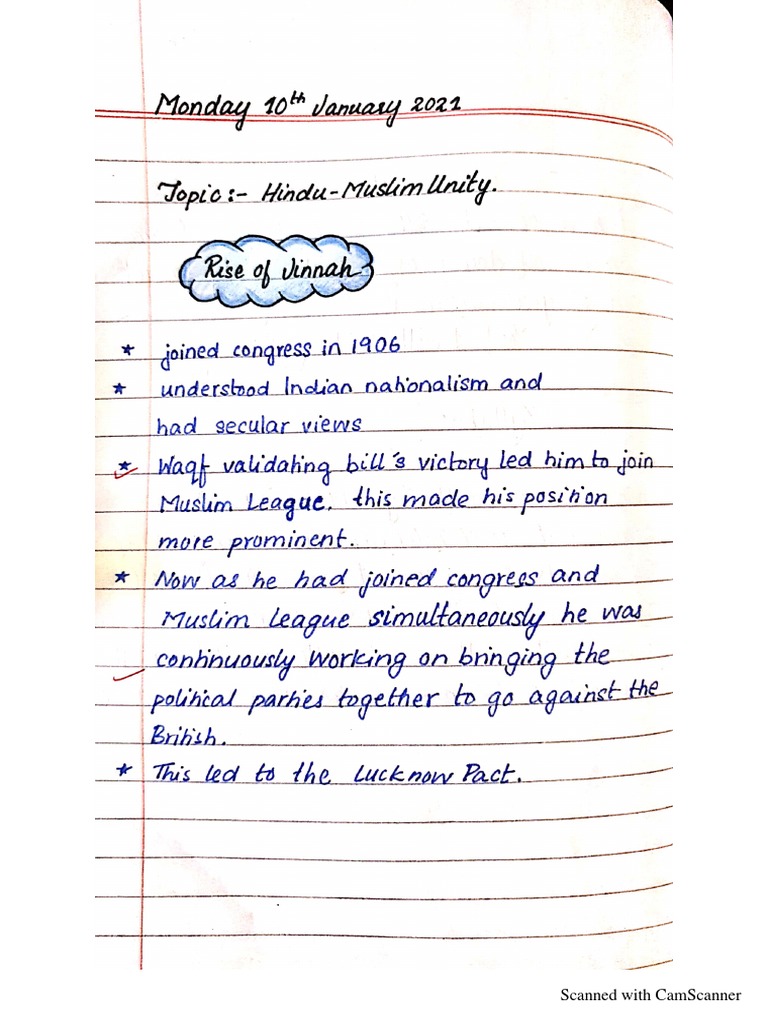 Monday 10th January 2021
Topic :- Hindu-Muslim Unity.
Rise of Jinnah
* joined congress in 1906
* understood Indian nationalism and
had secular views
* Waqf validating bill's victory led him to join
Muslim League. this made his position
more prominent.
* Now as he had joined congress and
Muslim League simultaneously he was
continuously working on bringing the
political parties together to go against the
British.
* This led to the Lucknow Pact.
Scanned with CamScanner